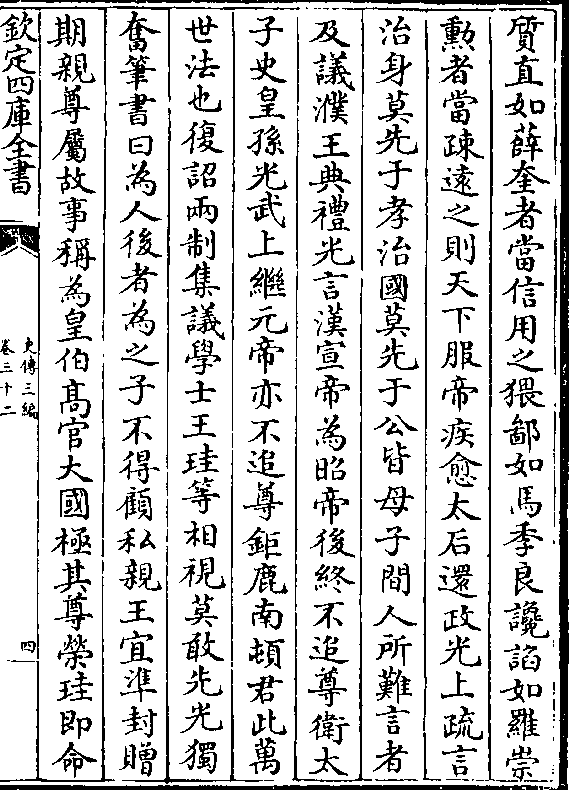 質直如薛奎者當信用之猥鄙如馬季良讒謟如羅崇
勲者當疎逺之則天下服帝疾愈太后還政光上疏言
治身莫先于孝治國莫先于公皆母子間人所難言者
及議濮王典禮光言漢宣帝為昭帝後終不追尊衛太
子史皇孫光武上繼元帝亦不追尊鉅鹿南頓君此萬
世法也復詔兩制集議學士王珪等相視莫敢先光獨
奮筆書曰為人後者為之子不得顧私親王宜準封贈
期親尊屬故事稱為皇伯髙官大國極其尊榮珪即命
欽定四庫全書
史傳三編
卷三十二
四